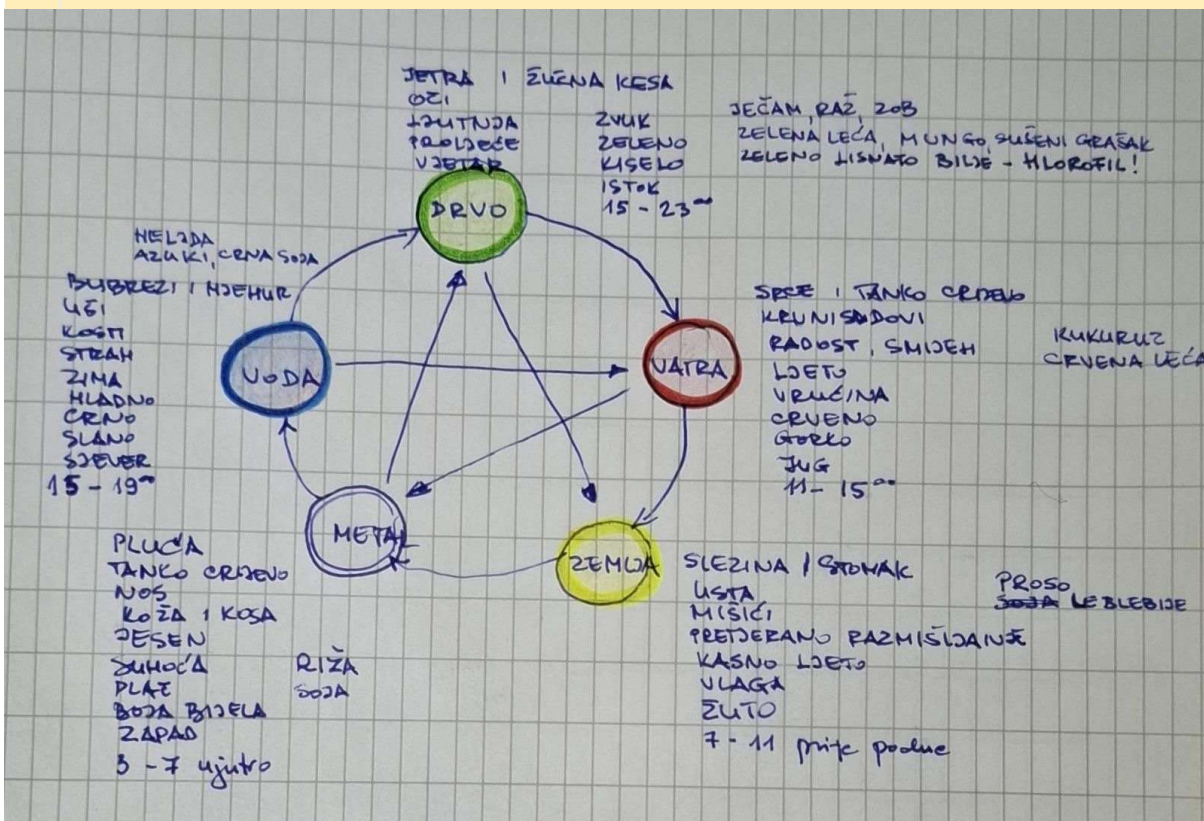 JETRA I ŽUČNA KESA
OČI
LJUTNJA
PROLJEĆE
VJETAR
ZVUK
ZELENO
KISELO
ISTOK
15 - 23⁰⁰
JEČAM, RAŽ, ZOB
ZELENA LEĆA, MUNGO, SUŠENI GRAŠAK
ZELENO LISNATO BILJE - HLOROFIL!
DRVO
HELJDA
AZUKI, CRNA SOJA
BUBREZI I MJEHUR
UŠI
KOSTI
STRAH
ZIMA
HLADNO
CRNO
SLANO
SJEVER
15 - 19⁰⁰
VODA
VATRA
SRCE I TANKO CRIJEVO
KRVNI SUDOVI
RADOST, SMIJEH
LJETO
VRUĆINA
CRVENO
GORKO
JUG
11 - 15⁰⁰
KUKURUZ
CRVENA LEĆA
METAL
PLUĆA
TANKO CRIJEVO
NOS
KOŽA I KOSA
JESEN
SUHOĆA
PLAČ
BOJA BIJELA
ZAPAD
3 - 7 ujutro
RIŽA
SOJA
ZEMLJA
SLEZINA I STOMAK
USTA
MIŠIĆI
PRETJERANO RAZMIŠLJANJE
KASNO LJETO
VLAGA
ŽUTO
7 - 11 prije podne
PROSO
SOJA LEBLEBIJE